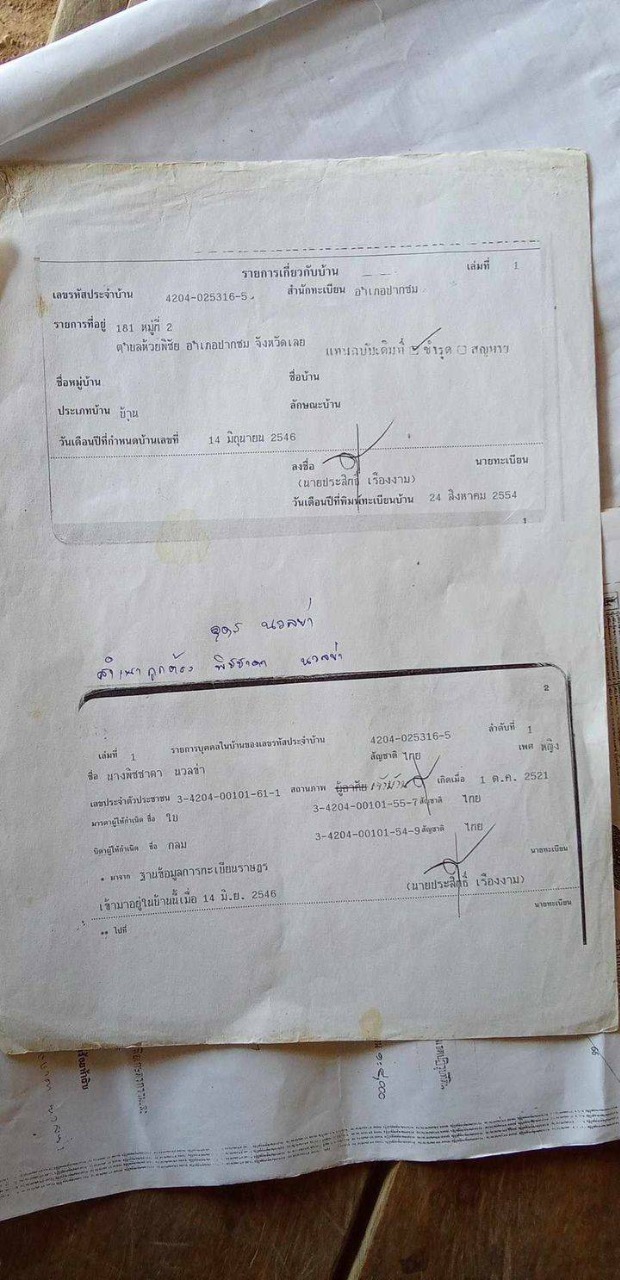 รายการเกี่ยวกับบ้าน เล่มที่ 1
เลขรหัสประจำบ้าน 4204-025316-5 สำนักทะเบียน อำเภอปากชม
รายการที่อยู่ 181 หมู่ที่ 2
ตำบลห้วยพิชัย อำเภอปากชม จังหวัดเลย แทนฉบับเดิมที่ ชำรุด สูญหาย
ชื่อหมู่บ้าน ชื่อบ้าน
ประเภทบ้าน บ้าน ลักษณะบ้าน
วันเดือนปีที่กำหนดบ้านเลขที่ 14 มิถุนายน 2546
ลงชื่อ นายทะเบียน
(นายประสิทธิ์ เรืองงาม)
วันเดือนปีที่พิมพ์ทะเบียนบ้าน 24 สิงหาคม 2554
1
นวลขำ
สำเนาถูกต้อง พิชชาดา นวลขำ
2
เล่มที่ 1 รายการบุคคลในบ้านของเลขรหัสประจำบ้าน 4204-025316-5 ลำดับที่ 1
ชื่อ นางพิชชาดา นวลขำ สัญชาติ ไทย เพศ หญิง
เลขประจำตัวประชาชน 3-4204-00101-61-1 สถานภาพ ผู้อาศัย เจ้าบ้าน เกิดเมื่อ 1 ต.ค. 2521
มารดาผู้ให้กำเนิด ชื่อ ใบ 3-4204-00101-55-7 สัญชาติ ไทย
บิดาผู้ให้กำเนิด ชื่อ กลม 3-4204-00101-54-9 สัญชาติ ไทย
* มาจาก ฐานข้อมูลการทะเบียนราษฎร นายทะเบียน
(นายประสิทธิ์ เรืองงาม)
เข้ามาอยู่ในบ้านนี้เมื่อ 14 มิ.ย. 2546
** ไปที่ นายทะเบียน